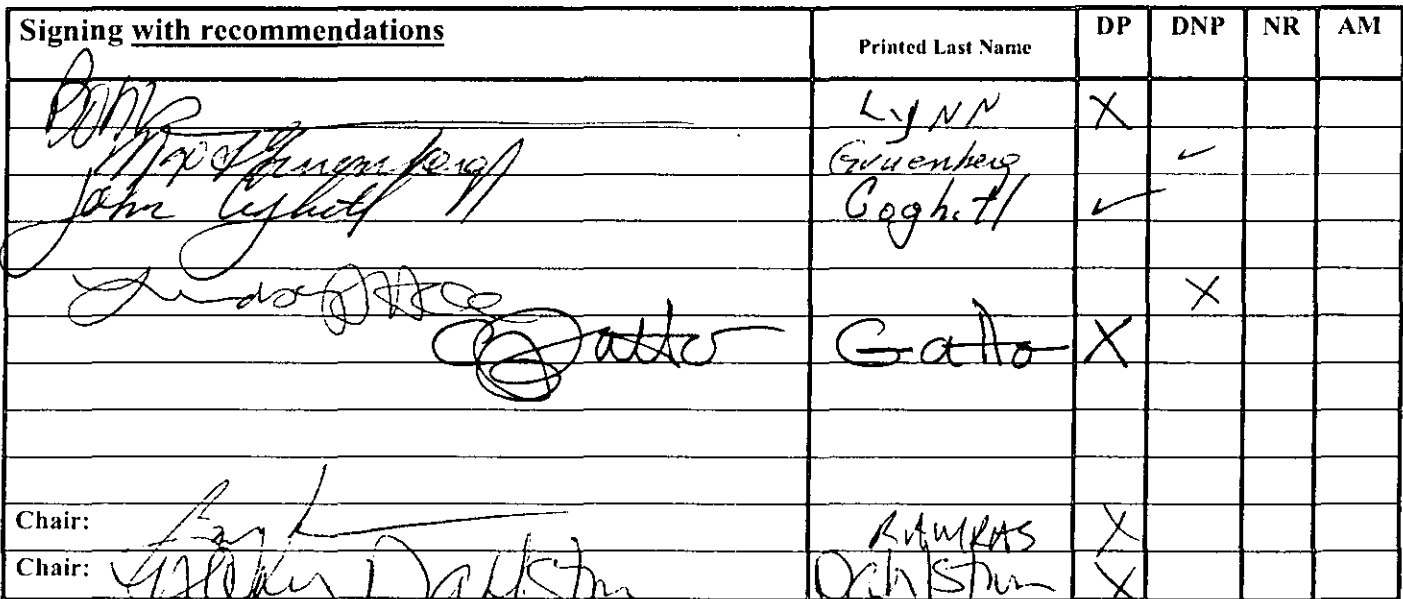 Signing with recommendations Printed Last Name DP DNP NR AM
Lynn X
Max Gruenberg Gruenberg ✓
John Coghill Coghill ✓
X
Gatto Gatto X
Chair: Ramras X
Chair: Dahlstrom Dahlstrom X